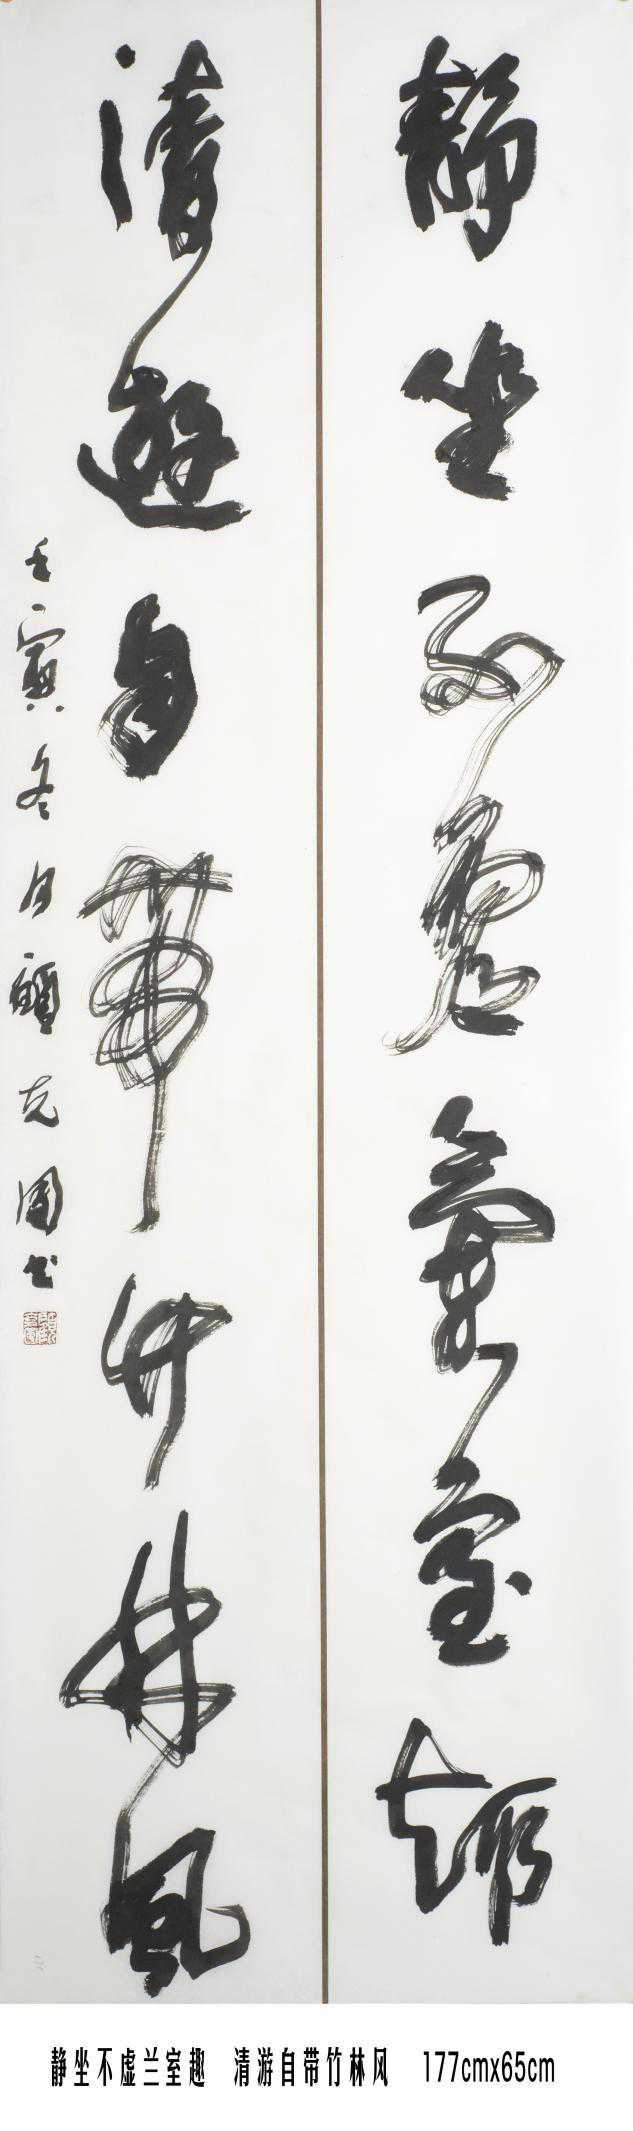 静坐不虚兰室趣
清遊自带竹林风
壬寅冬月顾克国书
静坐不虚兰室趣 清游自带竹林风 177cmx65cm